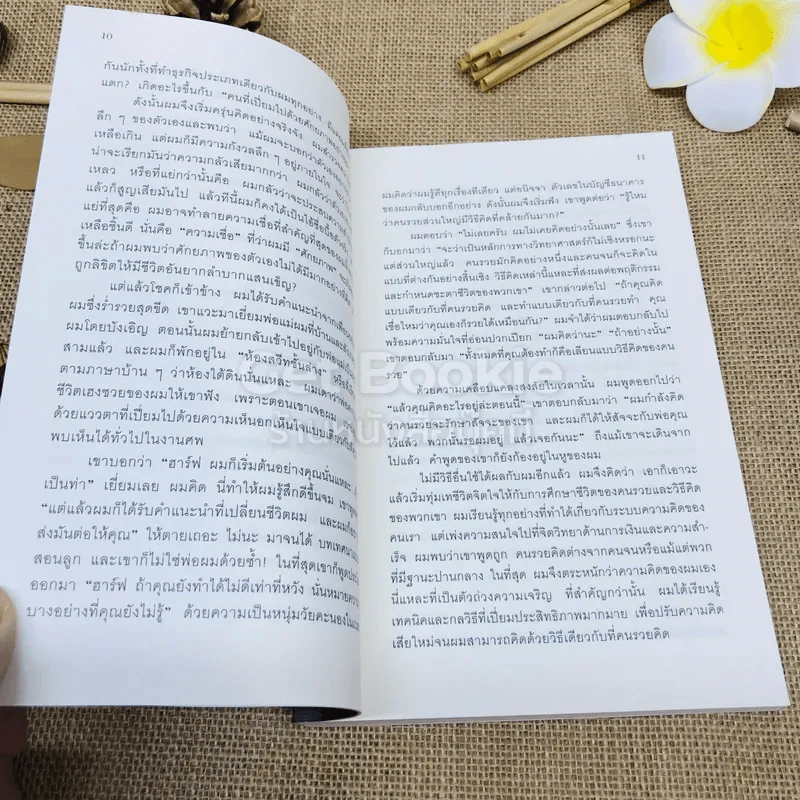 10
กันนักทั้งที่ทำธุรกิจประเภทเดียวกับผมทุกอย่าง
แตก? เกิดอะไรขึ้นกับ “คนที่เปี่ยมไปด้วยศักยภาพ
ดังนั้นผมจึงเริ่มครุ่นคิดอย่างจริงจัง
ลึก ๆ ของตัวเองและพบว่า แม้ผมจะบอกว่าตัวเอง
เหลือเกิน แต่ผมก็มีความกังวลลึก ๆ อยู่ภายในใจ
น่าจะเรียกมันว่าความกลัวเสียมากกว่า ผมกลัวว่า
เหลว หรือที่แย่กว่านั้นคือ ผมกลัวว่าจะประสบความ
แล้วก็สูญเสียมันไป แล้วทีนี้ผมก็คงได้เป็นไอ้ซื่อบื้อ
แย่ที่สุดคือ ผมอาจทำลายความเชื่อที่สำคัญที่สุดของ
เหลือชิ้นดี นั่นคือ “ความเชื่อ” ที่ว่าผมมี “ศักยภาพ”
ขึ้นล่ะถ้าผมพบว่าศักยภาพของตัวเองไม่ได้มีมากอย่าง
ถูกลิขิตให้มีชีวิตอันยากลำบากแสนเข็ญ?
แต่แล้วโชคก็เข้าข้าง ผมได้รับคำแนะนำจากเพื่อน
ผมซึ่งร่ำรวยสุดขีด เขาแวะมาเยี่ยมพ่อแม่ผมที่บ้าน
ผมโดยบังเอิญ ตอนนั้นผมย้ายกลับเข้าไปอยู่กับพ่อแม่
สามแล้ว และผมก็พักอยู่ใน “ห้องสวีทชั้นล่าง” หรือ
ตามภาษาบ้าน ๆ ว่าห้องใต้ดินนั่นแหละ ผมเดาว่าพ่อ
ชีวิตเฮงซวยของผมให้เขาฟัง เพราะตอนเขาเจอผม
ด้วยแววตาที่เปี่ยมไปด้วยความเห็นอกเห็นใจแบบเดียวกับ
พบเห็นได้ทั่วไปในงานศพ
เขาบอกว่า “ฮาร์ฟ ผมก็เริ่มต้นอย่างคุณนั่นแหละ
เป็นท่า” เยี่ยมเลย ผมคิด นี่ทำให้ผมรู้สึกดีขึ้นจม
“แต่แล้วผมก็ได้รับคำแนะนำที่เปลี่ยนชีวิตผม และผมก็
ส่งมันต่อให้คุณ” ให้ตายเถอะ ไม่นะ มาจนได้ บทเทศนา
สอนลูก และเขาก็ไม่ใช่พ่อผมด้วยซ้ำ! ในที่สุดเขาก็พูด
ออกมา “ฮาร์ฟ ถ้าคุณยังทำได้ไม่ดีเท่าที่หวัง นั่นหมายความ
บางอย่างที่คุณยังไม่รู้” ด้วยความเป็นหนุ่มวัยคะนอง
11
ผมคิดว่าผมรู้ดีทุกเรื่องทีเดียว แต่อนิจจา ตัวเลขในบัญชีธนาคาร
ของผมกลับบอกอีกอย่าง ดังนั้นผมจึงเริ่มฟัง เขาพูดต่อว่า “รู้ไหม
ว่าคนรวยส่วนใหญ่มีวิธีคิดที่คล้ายกันมาก?”
ผมตอบว่า “ไม่เลยครับ ผมไม่เคยคิดอย่างนั้นเลย” ซึ่งเขา
ก็บอกมาว่า “จะว่าเป็นหลักการทางวิทยาศาสตร์ก็ไม่เชิงหรอกนะ
แต่ส่วนใหญ่แล้ว คนรวยมักคิดอย่างหนึ่งและคนจนก็จะคิดใน
แบบที่ต่างกันอย่างสิ้นเชิง วิธีคิดเหล่านี้แหละที่ส่งผลต่อพฤติกรรม
และกำหนดชะตาชีวิตของพวกเขา” เขากล่าวต่อไป “ถ้าคุณคิด
แบบเดียวกับที่คนรวยคิด และทำแบบเดียวกับที่คนรวยทำ คุณ
เชื่อไหมว่าคุณเองก็รวยได้เหมือนกัน?” ผมจำได้ว่าผมตอบกลับไป
พร้อมความมั่นใจที่อ่อนปวกเปียก “ผมคิดว่านะ” “ถ้าอย่างนั้น”
เขาตอบกลับมา “ทั้งหมดที่คุณต้องทำก็คือเลียนแบบวิธีคิดของคน
รวย”
Get Bookie
ด้วยความเคลือบแคลงสงสัยในเวลานั้น ผมพูดออกไปว่า
“แล้วคุณคิดอะไรอยู่ล่ะตอนนี้” เขาตอบกลับมาว่า “ผมกำลังคิด
ว่าคนรวยจะรักษาสัจจะของเขา และผมก็ได้ให้สัจจะกับพ่อคุณ
ไว้แล้ว พวกนั้นรอผมอยู่ แล้วเจอกันนะ” ถึงแม้เขาจะเดินจาก
ไปแล้ว คำพูดของเขาก็ยังก้องอยู่ในหูของผม
ไม่มีวิธีอื่นใช้ได้ผลกับผมอีกแล้ว ผมจึงคิดว่า เอาก็เอาวะ
แล้วเริ่มทุ่มเทชีวิตจิตใจให้กับการศึกษาชีวิตของคนรวยและวิธีคิด
ของพวกเขา ผมเรียนรู้ทุกอย่างที่ทำได้เกี่ยวกับระบบความคิดของ
คนเรา แต่เพ่งความสนใจไปที่จิตวิทยาด้านการเงินและความสำ-
เร็จ ผมพบว่าเขาพูดถูก คนรวยคิดต่างจากคนจนหรือแม้แต่พวก
ที่มีฐานะปานกลาง ในที่สุด ผมจึงตระหนักว่าความคิดของผมเอง
นี่แหละที่เป็นตัวถ่วงความเจริญ ที่สำคัญกว่านั้น ผมได้เรียนรู้
เทคนิคและกลวิธีที่เปี่ยมประสิทธิภาพมากมาย เพื่อปรับความคิด
เสียใหม่จนผมสามารถคิดด้วยวิธีเดียวกับที่คนรวยคิด